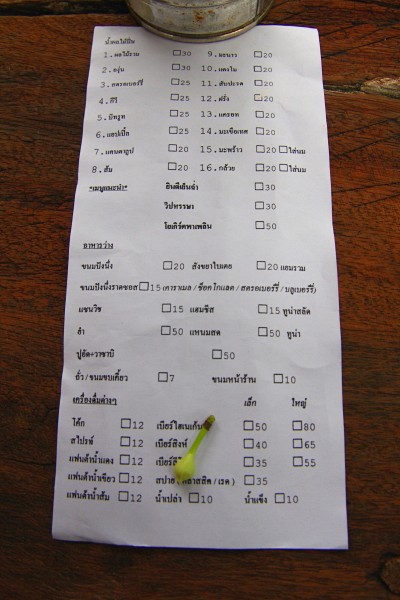 น้ำผลไม้ปั่น
1. ผลไม้รวม □30 9. มะนาว □20
2. องุ่น □30 10. แตงโม □20
3. สตรอเบอร์รี่ □25 11. สับปะรด □20
4. กีวี □25 12. ฝรั่ง □20
5. บีทรูท □25 13. แครอท □20
6. แอปเปิ้ล □25 14. มะเขือเทศ □20
7. แคนตาลูป □20 15. มะพร้าว □20 □ใส่นม
8. ส้ม □20 16. กล้วย □20 □ใส่นม
*เมนูแนะนำ* ยินดีเย็นฉ่ำ □30
วิปทรรษา □30
โยเกิร์ตพาเพลิน □50
อาหารว่าง
ขนมปังนึ่ง □20 สังขยาใบเตย □20 แยมรวม
ขนมปังนึ่งราดซอส □15 (คาราเมล / ช็อคโกแลต / สตรอเบอร์รี่ / บลูเบอร์รี่)
แซนวิช □15 แฮมชีส □15 ทูน่าสลัด
ยำ □50 แหนมสด □50 ทูน่า
ปูอัด+วาซาบิ □50
ถั่ว / ขนมขบเคี้ยว □7 ขนมหน้าร้าน □10
เครื่องดื่มต่างๆ เล็ก ใหญ่
โค้ก □12 เบียร์ไฮเนเก้น □50 □80
สไปรท์ □12 เบียร์สิงห์ □40 □65
แฟนต้าน้ำแดง □12 เบียร์ □35 □55
แฟนต้าน้ำเขียว □12 สปาย (คลาสสิค / เรด) □35
แฟนต้าน้ำส้ม □12 น้ำเปล่า □10 น้ำแข็ง □10